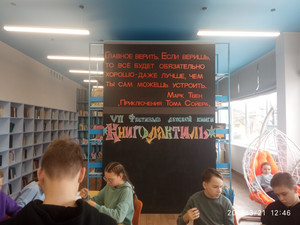 Главное верить. Если веришь,
то все будет обязательно
хорошо, даже лучше, чем
ты сам можешь устроить.
Марк Твен
„Приключения Тома Сойера„
VII Фестиваль детской книги
"Книгомактиль"
12:46